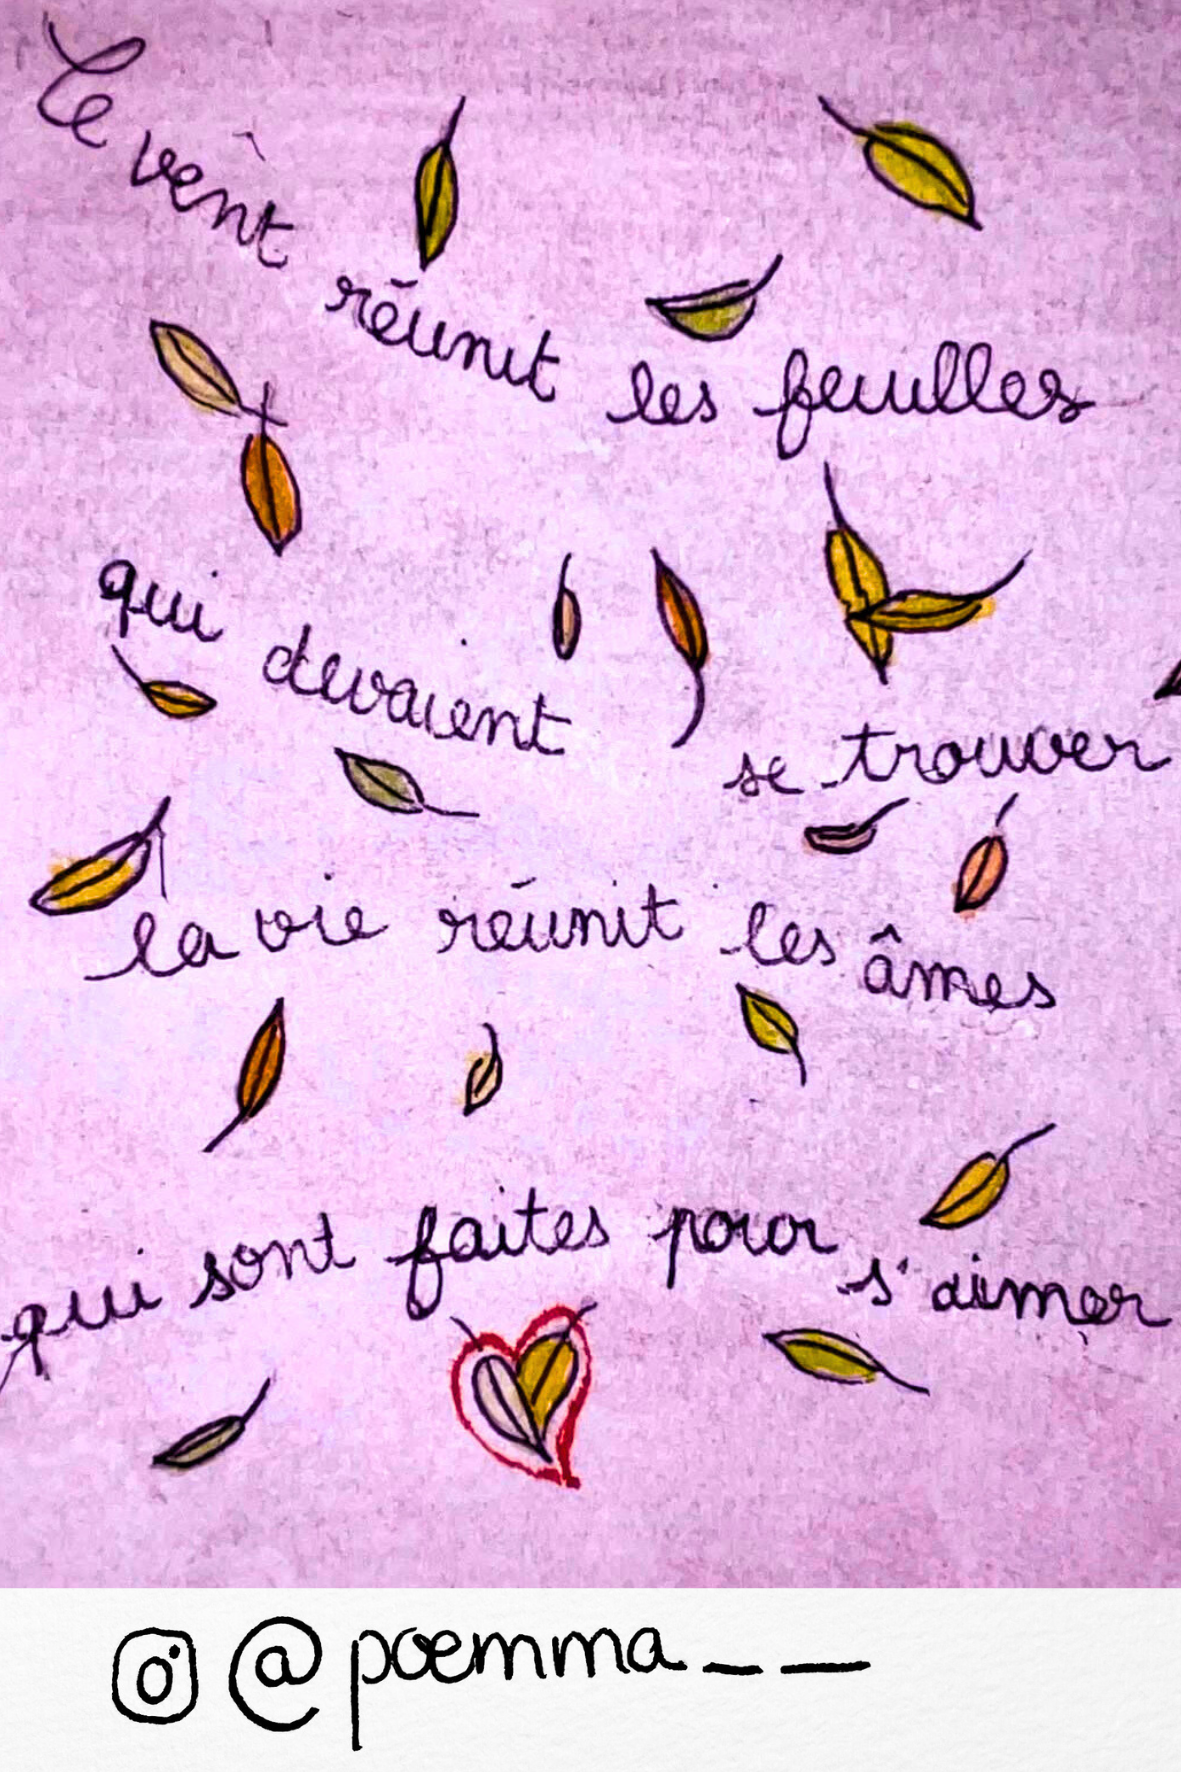 Le vent réunit les feuilles
qui devaient se trouver
la vie réunit les âmes
qui sont faites pour s'aimer
@poemma__